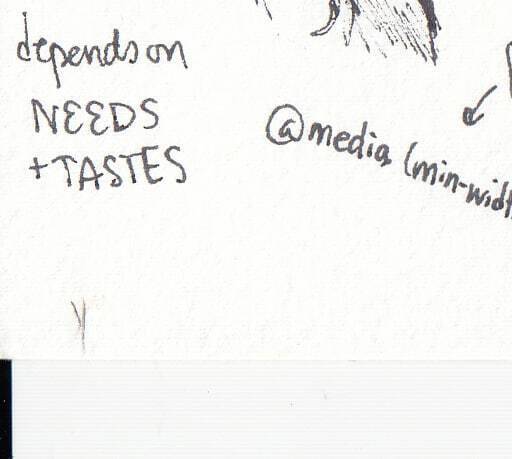 depends on
NEEDS
+ TASTES
@media (min-widt